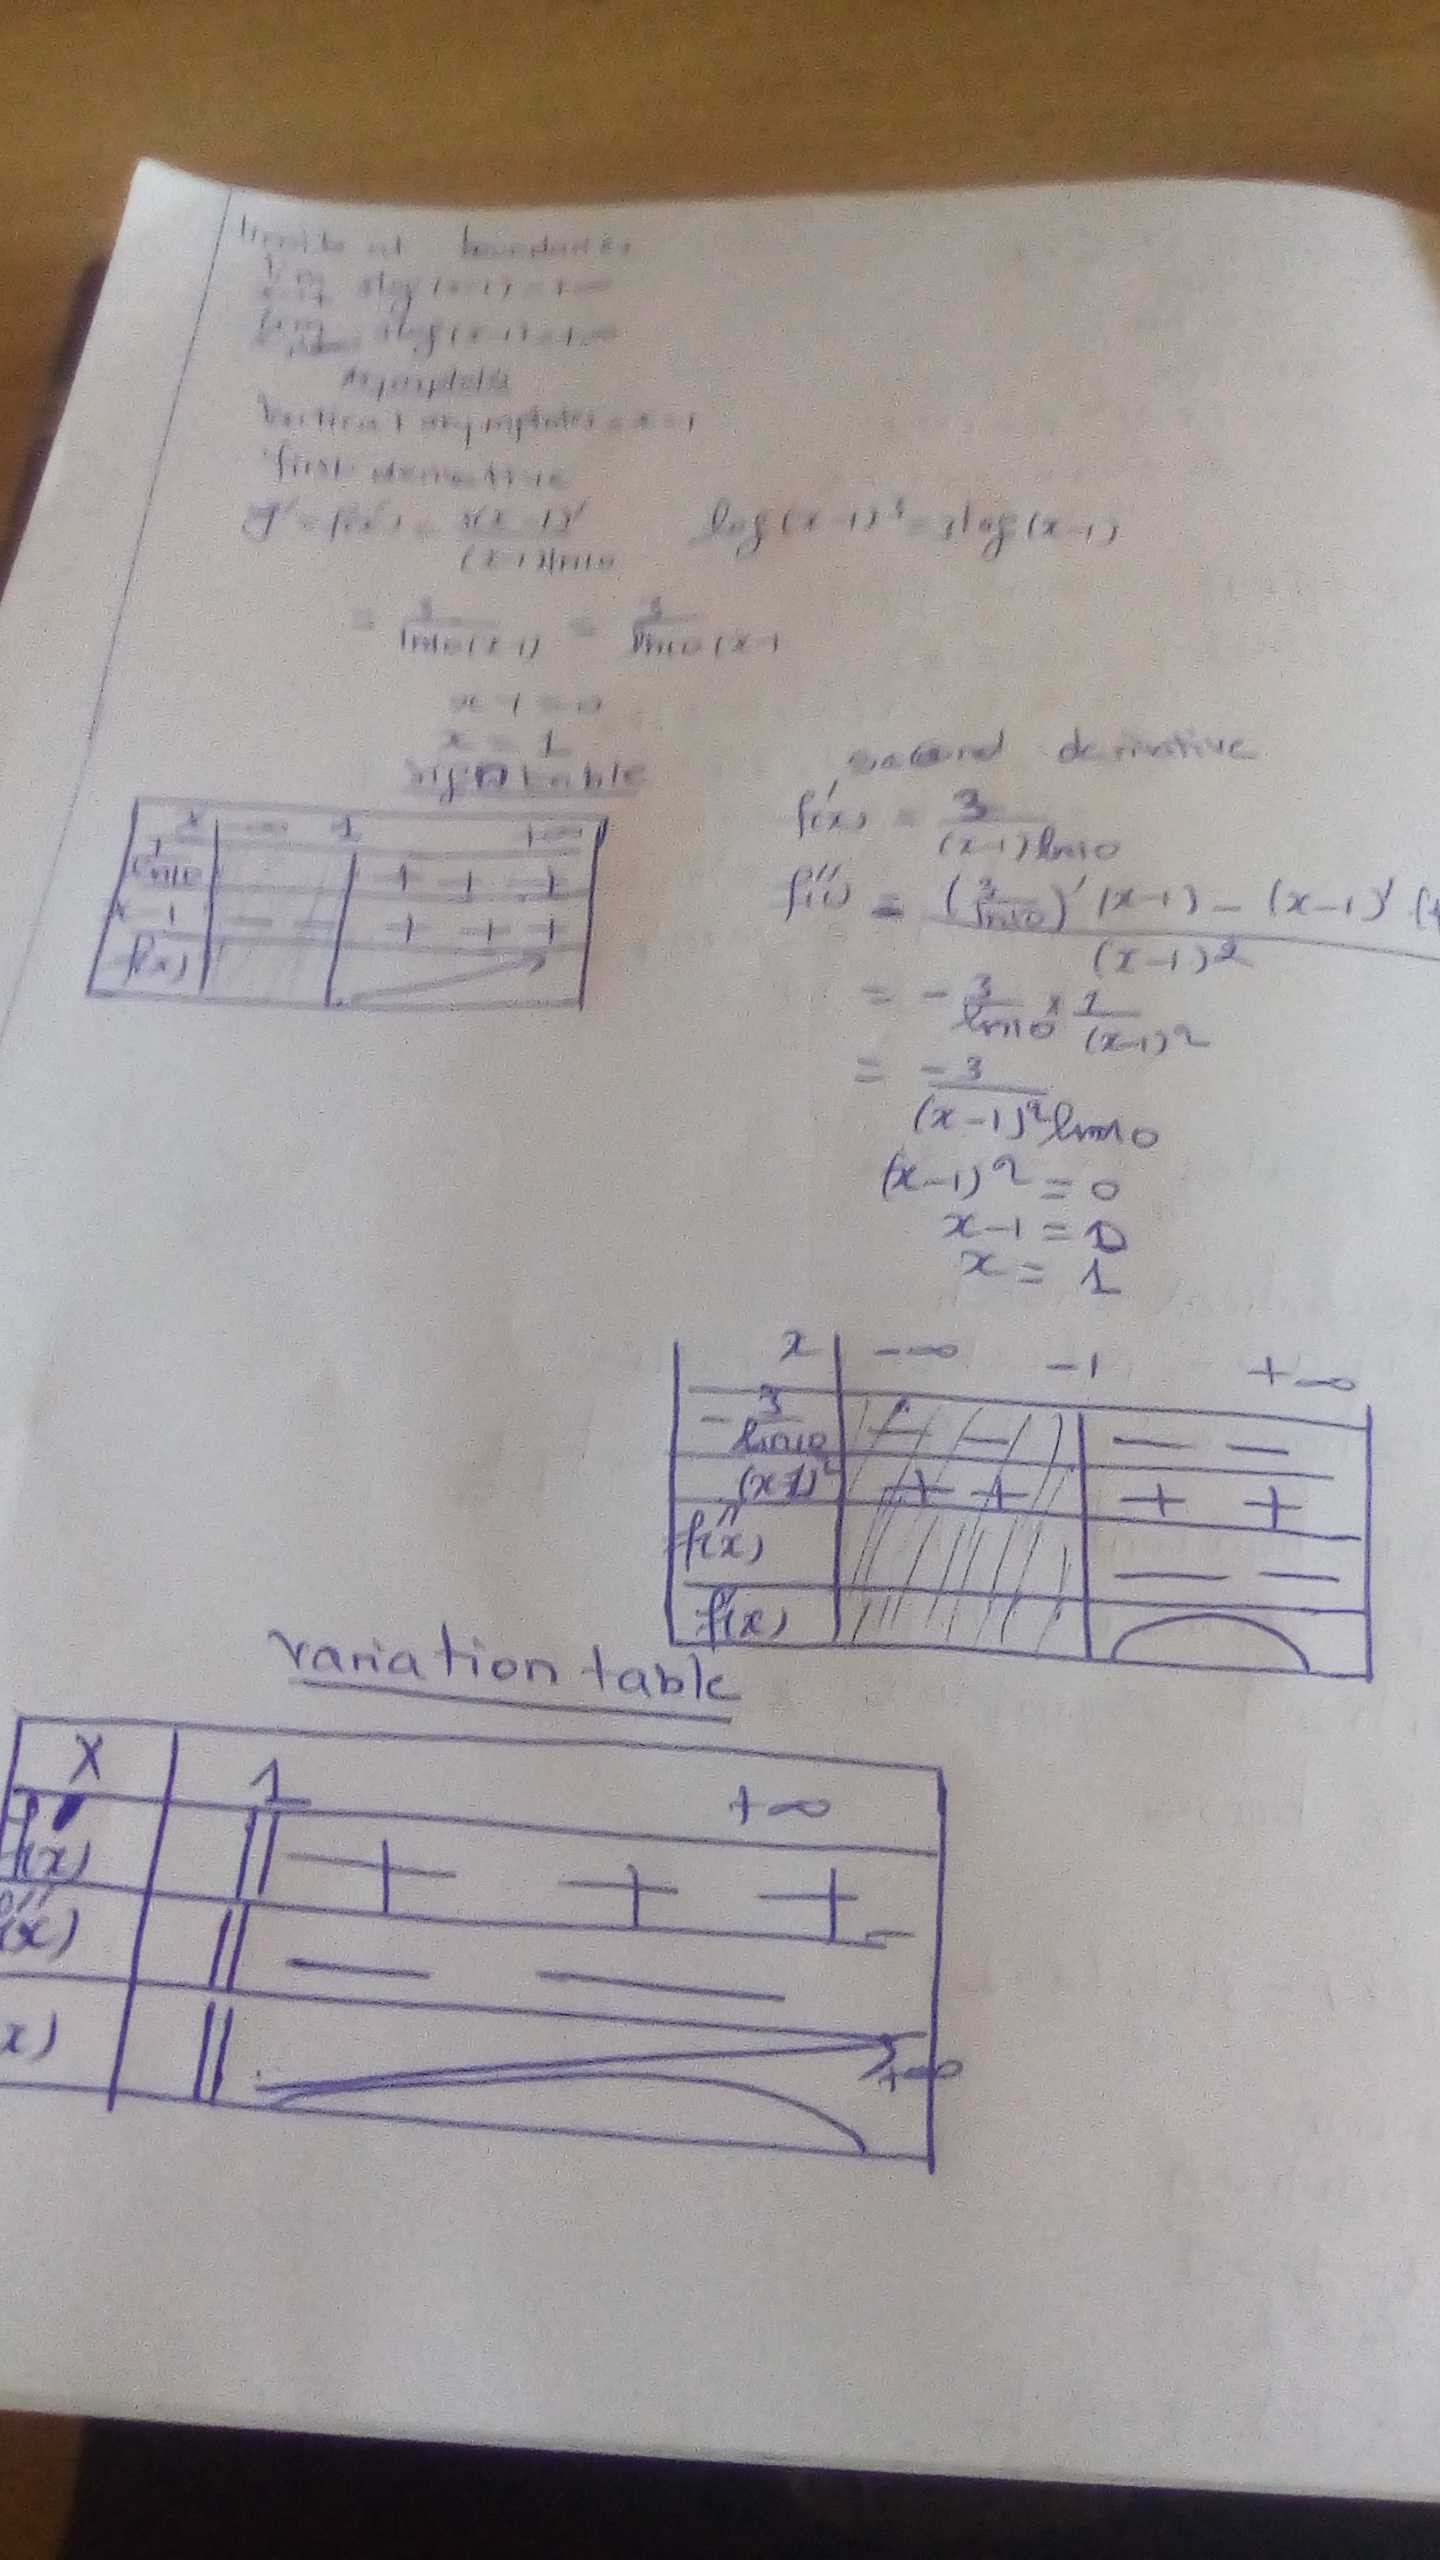 limits at boundaries
lim 3log(x-1) = +∞
lim 3log(x-1) = +∞
Asymptote
Vertical asymptotes = x = 1
first derivative
y' = f'(x) = 3(x-1)' / (x-1)ln10
log(x-1)³ = 3log(x-1)
= 3 / ln10(x-1) = 3 / ln10(x-1
x-1 = 0
x = 1
sign table
x -∞ 1 +∞
ln10 + + +
x-1 - - + + +
f(x)
second derivative
f'(x) = 3 / (x-1)ln10
f''(x) = (3/ln10)' (x-1) - (x-1)' ( / (x-1)²
= - 3/ln10 × 1/(x-1)²
= -3 / (x-1)²ln10
(x-1)² = 0
x-1 = 0
x = 1
x -∞ -1 +∞
- 3/ln10 - - - -
(x-1)² + + + +
f''(x) - -
f(x)
variation table
x 1 +∞
f'(x) + + +
f''(x) - - -
x) +∞